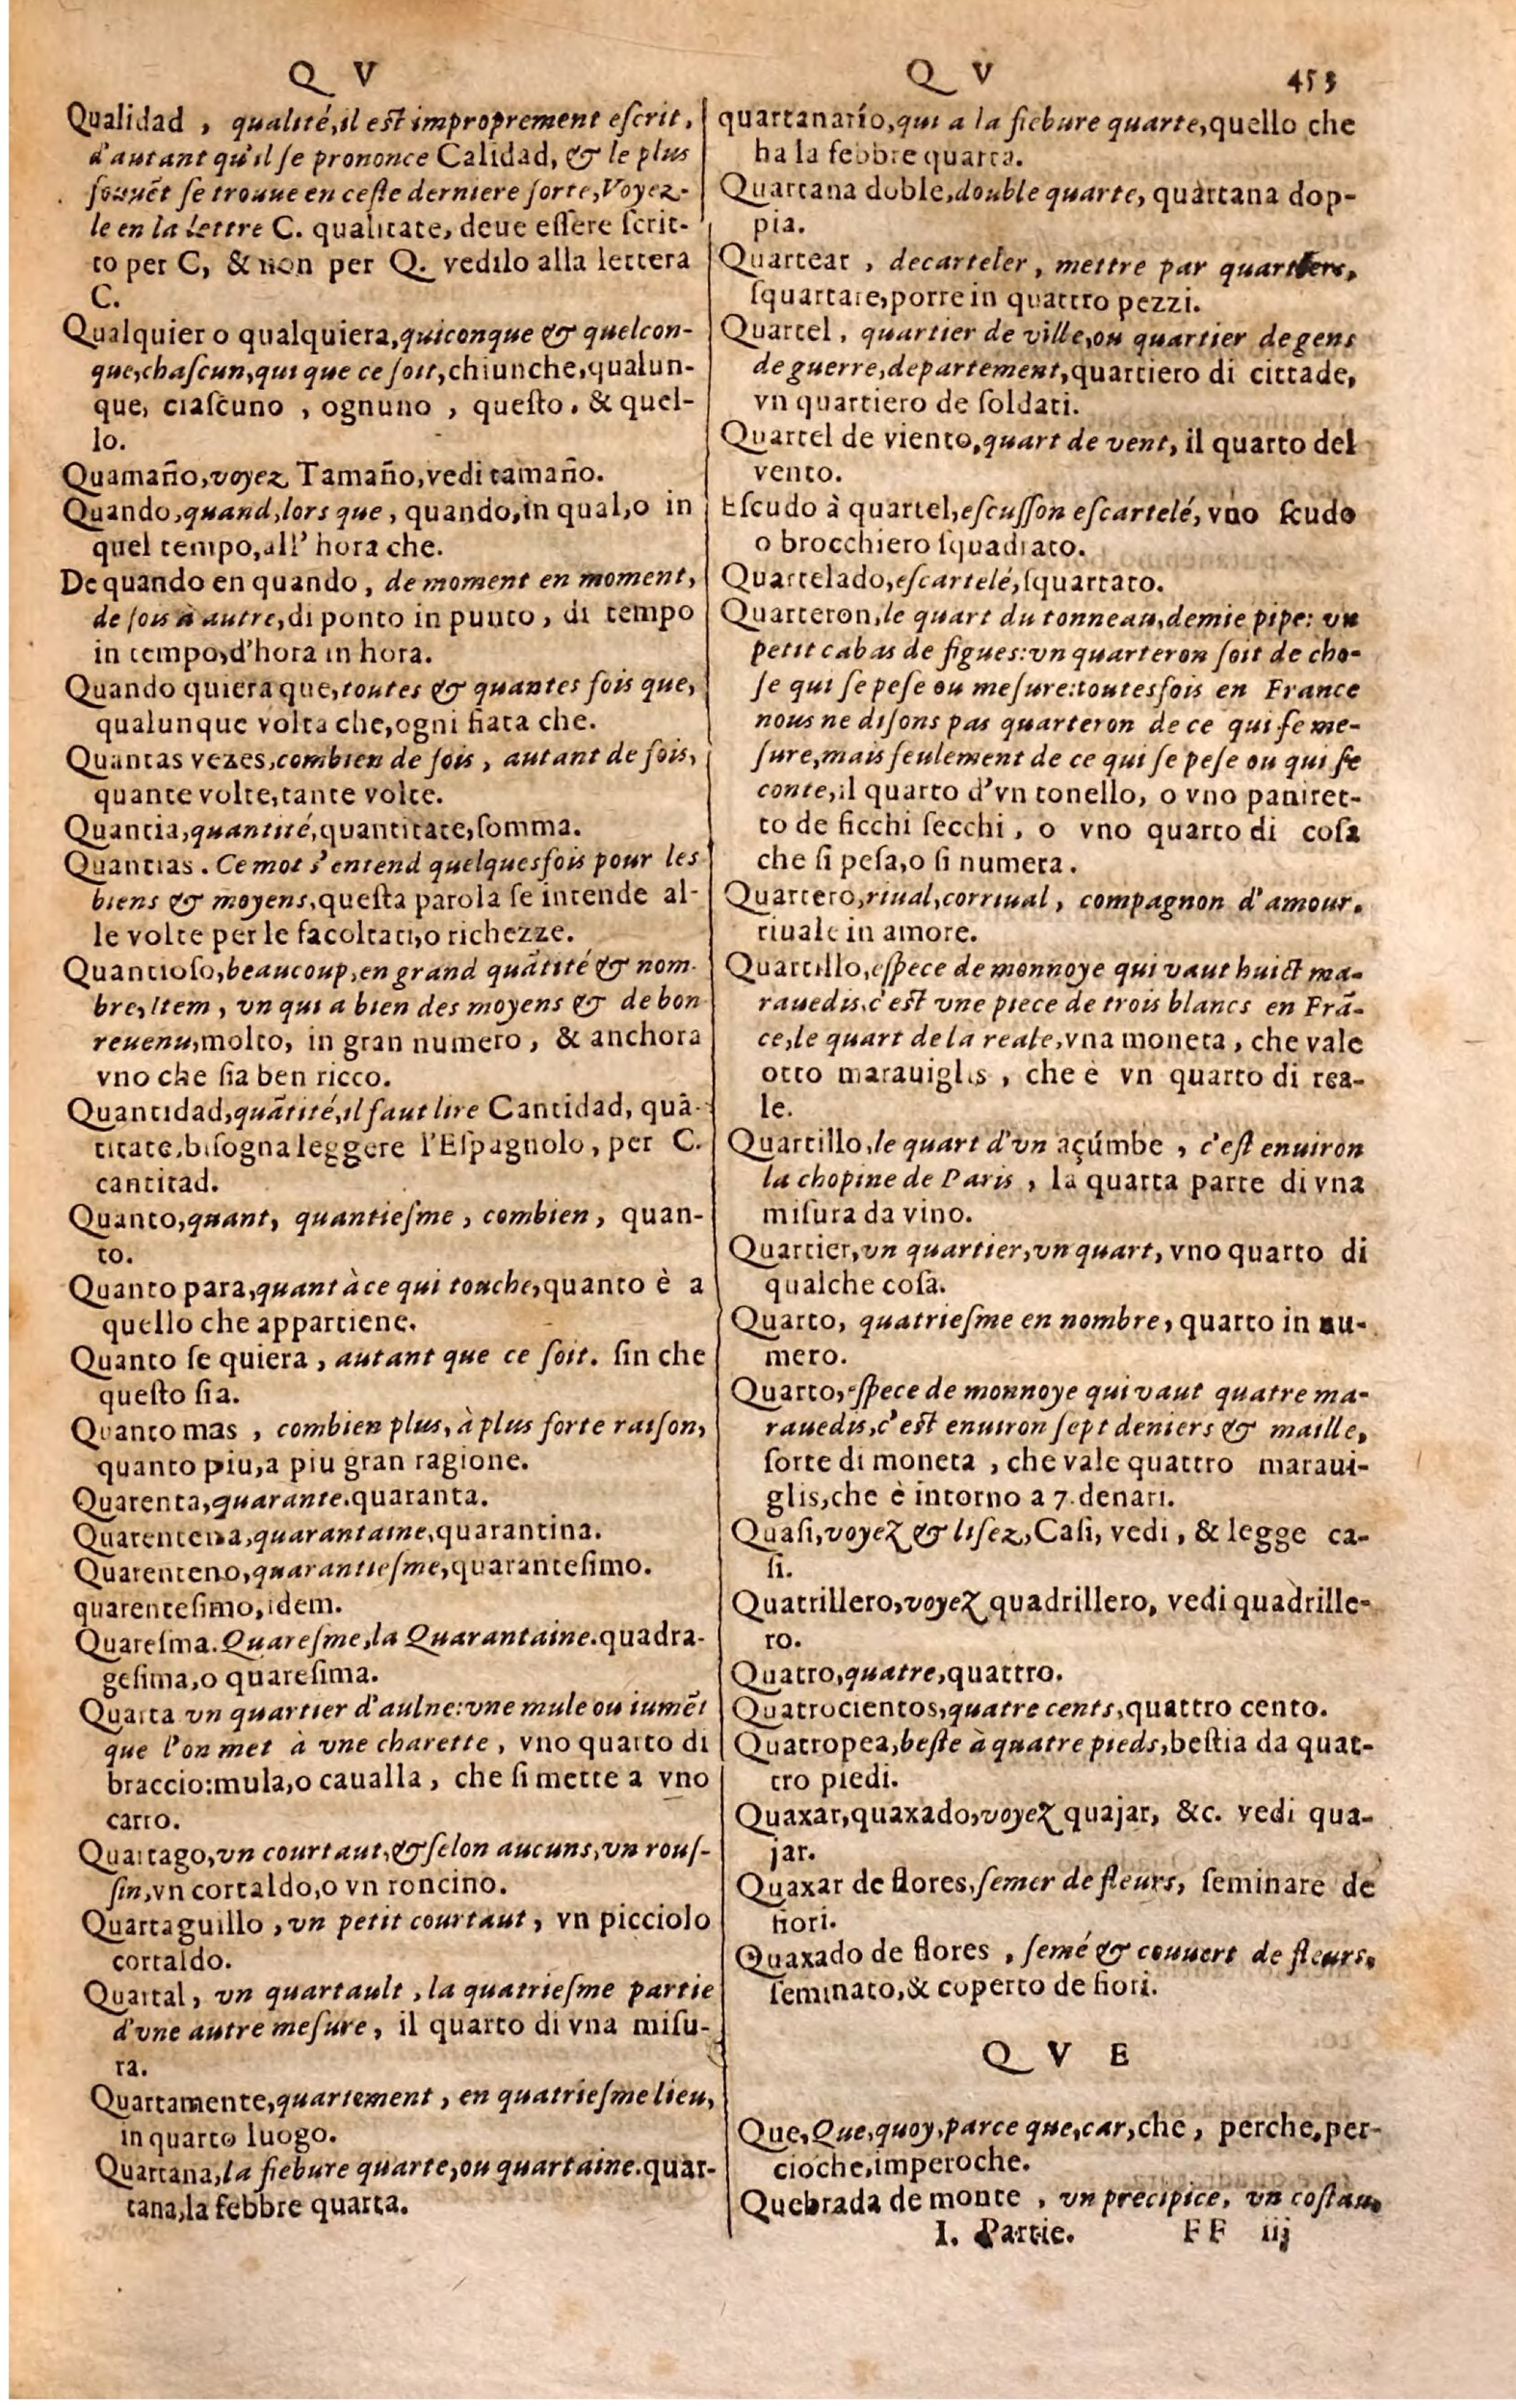 Q V
Qualidad, qualité, il est improprement escrit,
d'autant qu'il se prononce Calidad, & le plus
souuẽt se trouue en ceste derniere sorte, Voyez-
le en la lettre C. qualitate, deue essere scrit-
to per C, & non per Q. vedilo alla lettera
C.
Qualquier o qualquiera, quiconque & quelcon-
que, chascun, qui que ce soit, chiunche, qualun-
que, ciascuno, ognuno, questo, & quel-
lo.
Quamaño, voyez Tamaño, vedi tamaño.
Quando, quand, lors que, quando, in qual, o in
quel tempo, all' hora che.
De quando en quando, de moment en moment,
de fois à autre, di ponto in punto, di tempo
in tempo, d'hora in hora.
Quando quiera que, toutes & quantes fois que,
qualunque volta che, ogni fiata che.
Quantas vezes, combien de fois, autant de fois,
quante volte, tante volte.
Quantia, quantité, quantitate, somma.
Quantias. Ce mot s'entend quelquesfois pour les
biens & moyens, questa parola se intende al-
le volte per le facoltati, o richezze.
Quantioso, beaucoup, en grand quãtité & nom-
bre, Item, vn qui a bien des moyens & de bon
reuenu, molto, in gran numero, & anchora
vno che sia ben ricco.
Quantidad, quãtité, il faut lire Cantidad, quã-
titate, bisogna leggere l'Espagnolo, per C.
cantitad.
Quanto, quant, quantiesme, combien, quan-
to.
Quanto para, quant à ce qui touche, quanto è a
quello che appartiene.
Quanto se quiera, autant que ce soit. sin che
questo sia.
Quanto mas, combien plus, à plus forte raison,
quanto piu, a piu gran ragione.
Quarenta, quarante. quaranta.
Quarentena, quarantaine, quarantina.
Quarenteno, quarantiesme, quarantesimo.
quarentesimo, idem.
Quaresma. Quaresme, la Quarantaine. quadra-
gesima, o quaresima.
Quarta vn quartier d'aulne: vne mule ou iumẽt
que l'on met à vne charette, vno quarto di
braccio: mula, o caualla, che si mette a vno
carro.
Quartago, vn courtaut, & selon aucuns, vn rous-
sin, vn cortaldo, o vn roncino.
Quartaguillo, vn petit courtaut, vn picciolo
cortaldo.
Quartal, vn quartault, la quatriesme partie
d'vne autre mesure, il quarto di vna misu-
ra.
Quartamente, quartement, en quatriesme lieu,
in quarto luogo.
Quartana, la fiebure quarte, ou quartaine. quar-
tana, la febbre quarta.
Q V 453
quartanario, qui a la fiebure quarte, quello che
ha la febbre quarta.
Quartana doble, double quarte, quartana dop-
pia.
Quartear, decarteler, mettre par quartiers,
squartare, porre in quattro pezzi.
Quartel, quartier de ville, ou quartier de gens
de guerre, departement, quartiero di cittade,
vn quartiero de soldati.
Quartel de viento, quart de vent, il quarto del
vento.
Escudo à quartel, escusson escartelé, vno scudo
o brocchiero squadrato.
Quartelado, escartelé, squartato.
Quarteron, le quart du tonneau, demie pipe: vn
petit cabas de figues: vn quarteron soit de cho-
se qui se pese ou mesure: toutesfois en France
nous ne disons pas quarteron de ce qui se me-
sure, mais seulement de ce qui se pese ou qui se
conte, il quarto d'vn tonello, o vno paniret-
to de ficchi secchi, o vno quarto di cosa
che si pesa, o si numera.
Quartero, riual, corriual, compagnon d'amour.
riuale in amore.
Quartillo, espece de monnoye qui vaut huict ma-
rauedis, c'est vne piece de trois blancs en Frã-
ce, le quart de la reale, vna moneta, che vale
otto marauiglis, che è vn quarto di rea-
le.
Quartillo, le quart d'vn açúmbe, c'est enuiron
la chopine de Paris, la quarta parte di vna
misura da vino.
Quartier, vn quartier, vn quart, vno quarto di
qualche cosa.
Quarto, quatriesme en nombre, quarto in nu-
mero.
Quarto, espece de monnoye qui vaut quatre ma-
rauedis, c'est enuiron sept deniers & maille,
sorte di moneta, che vale quattro maraui-
glis, che è intorno a 7. denari.
Quasi, voyez & lisez, Casi, vedi, & legge ca-
si.
Quatrillero, voyez quadrillero, vedi quadrille-
ro.
Quatro, quatre, quattro.
Quatrocientos, quatre cents, quattro cento.
Quatropea, beste à quatre pieds, bestia da quat-
tro piedi.
Quaxar, quaxado, voyez quajar, &c. vedi qua-
jar.
Quaxar de flores, semer de fleurs, seminare de
fiori.
Quaxado de flores, semé & couuert de fleurs,
seminato, & coperto de fiori.
Q V E
Que, Que, quoy, parce que, car, che, perche, per-
cioche, imperoche.
Quebrada de monte, vn precipice, vn costau,
I. Partie. FF iij